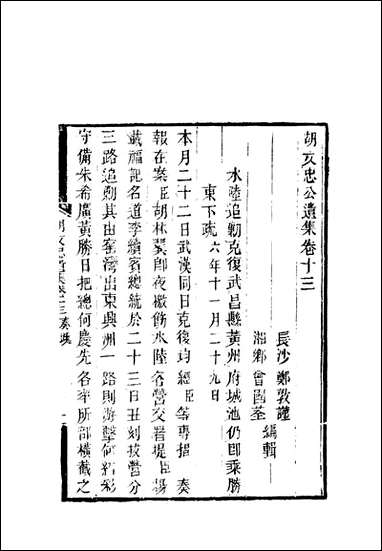 胡文忠公遺集卷十三
長沙 鄭敦謹
湘鄉 曾國荃 編輯
水陸追勦克復武昌縣黃州府城池仍即乘勝
東下疏 六年十一月二十九日
本月二十二日武漢同日克復均經臣等專摺奏
報在案臣胡林翼即夜檄飭水陸各營交署提臣楊
載福記名道李續賓總統於二十三日丑刻拔營分
三路追勦其由窰灣出東興洲一路則游擊何紹彩
守備朱希廣黃勝日把總何慶先各率所部橫截之
胡文忠公遺集卷十三 奏疏 一